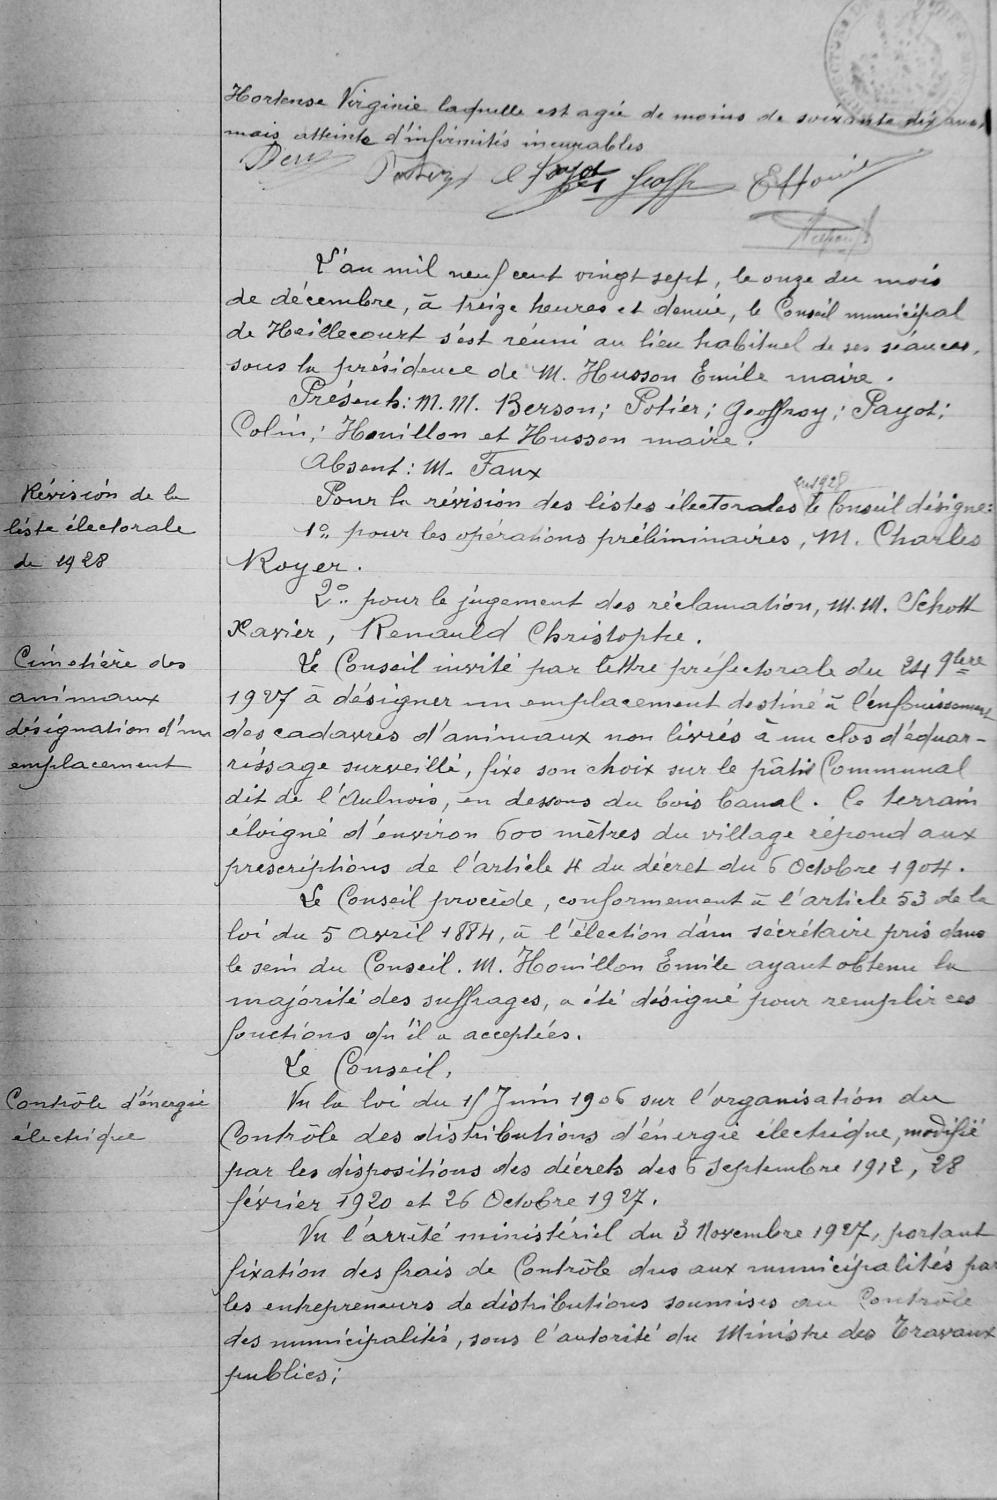 Hortense Virginie laquelle est agée de moins de soixante dix ans,
mais atteinte d'infirmités incurables
L'an mil neuf cent vingt sept, le onze du mois
de décembre, à treize heures et demie, le Conseil municipal
de Heillecourt s'est réuni au lieu habituel de ses séances,
sous la présidence de M. Husson Emile maire.
Présents: M.M. Berson; Potier; Geoffroy; Payot;
Colin; Houillon et Husson maire.
Absent: M. Faux
Révision de la
liste électorale
de 1928
en 1928
Pour la révision des listes électorales le Conseil désigne:
1° pour les opérations préliminaires, M. Charles
Royer.
2° pour le jugement des réclamation, M.M. Schott
Xavier, Renauld Christophe.
Cimetière des
animaux
désignation d'un
emplacement
Le Conseil invité par lettre préfectorale du 24 9bre
1927 à désigner un emplacement destiné à l'enfouissement
des cadavres d'animaux non livrés à un clos d'équar-
rissage surveillé, fixe son choix sur le pâtis Communal
dit de l'Aulnois, en dessous du bois banal. Ce terrain
éloigné d'environ 600 mètres du village répond aux
prescriptions de l'article 4 du décret du 6 Octobre 1904.
Le Conseil procède, conformement à l'article 53 de la
loi du 5 Avril 1884, à l'élection d'un sécrétaire pris dans
le sein du Conseil. M. Houillon Emile ayant obtenu la
majorité des suffrages, a été désigné pour remplir ces
fonctions qu'il a acceptées.
Contrôle d'énergie
électrique
Le Conseil,
Vu la loi du 15 Juin 1906 sur l'organisation du
Contrôle des distributions d'énergie électrique, modifié
par les dispositions des décrets des 6 septembre 1912, 28
février 1920 et 26 Octobre 1927.
Vu l'arrêté ministériel du 3 Novembre 1927, portant
fixation des frais de Contrôle dus aux municipalités par
les entrepreneurs de distributions soumises au Contrôle
des municipalités, sous l'autorité du Ministre des Travaux
publics;